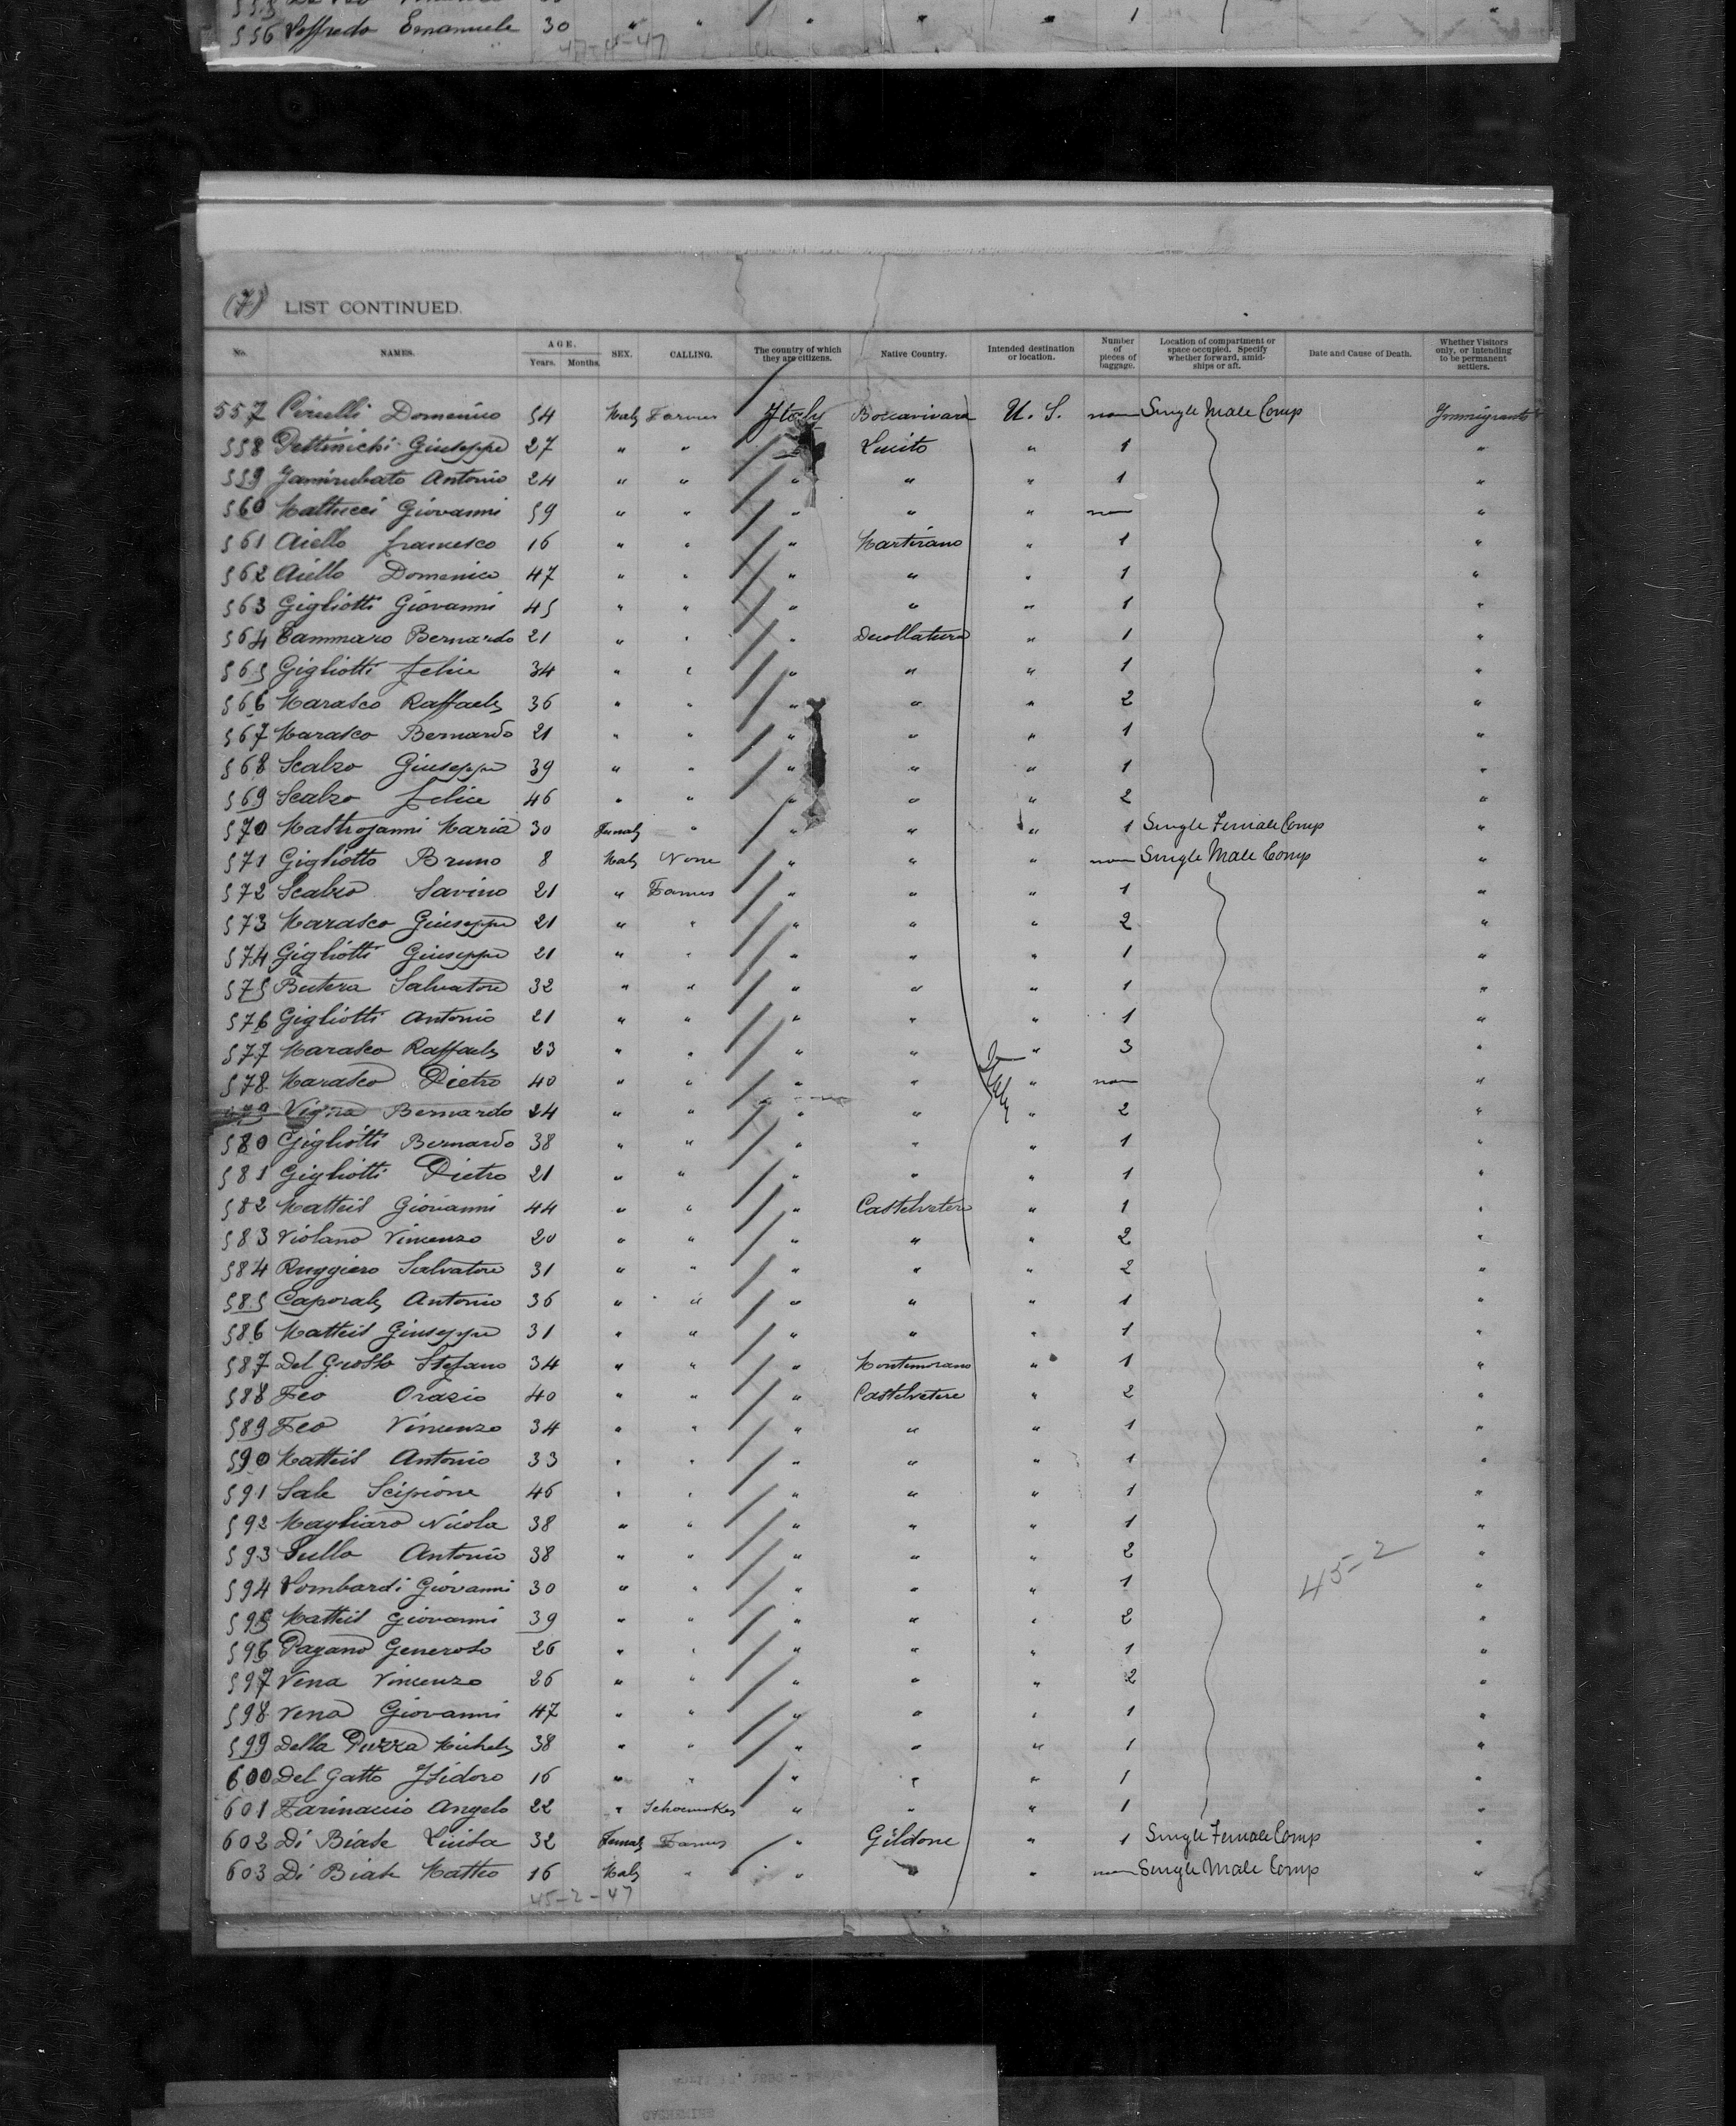 556 Loffredo Emanuele 30 " " " " " 1 "
47-4-47
(7) LIST CONTINUED.
No. NAMES. AGE. Years. Months. SEX. CALLING. The country of which they are citizens. Native Country. Intended destination or location. Number of pieces of baggage. Location of compartment or space occupied. Specify whether forward, amidships or aft. Date and Cause of Death. Whether Visitors only, or intending to be permanent settlers.
557 Cirulli Domenico 54 Male Farmer Italy Boccavivara U. S. none Single Male Comp Immigrants
558 Giuseppe 27 " " " Lucito " 1 "
559 Antonio 24 " " " " " 1 "
560 Mattucci Giovanni 59 " " " " " none "
561 Aiello francesco 16 " " " Martirano " 1 "
562 Aiello Domenico 47 " " " " " 1 "
563 Gigliotti Giovanni 45 " " " " " 1 "
564 Tammaro Bernardo 21 " " " Decollatura " 1 "
565 Gigliotti felice 34 " " " " " 1 "
566 Marasco Raffaele 36 " " " " " 2 "
567 Marasco Bernardo 21 " " " " " 1 "
568 Scalzo Giuseppe 39 " " " " " 1 "
569 Scalzo felice 46 " " " " " 2 "
570 Mastrojanni Maria 30 Female " " " " 1 Single Female Comp "
571 Gigliotto Bruno 8 Male None " " " none Single Male Comp "
572 Scalzo Savino 21 " Farmer " " " 1 "
573 Marasco Giuseppe 21 " " " " " 2 "
574 Gigliotti Giuseppe 21 " " " " " 1 "
575 Butera Salvatore 32 " " " " " 1 "
576 Gigliotti Antonio 21 " " " " " 1 "
577 Marasco Raffaele 23 " " " " " 3 "
Italy
578 Marasco Pietro 40 " " " " " none "
579 Bernardo 24 " " " " " 2 "
580 Gigliotti Bernardo 38 " " " " " 1 "
581 Gigliotti Pietro 21 " " " " " 1 "
582 Matteis Giovanni 44 " " " Castelvetere " 1 "
583 Violano Vincenzo 20 " " " " " 2 "
584 Ruggiero Salvatore 31 " " " " " 2 "
585 Caporale Antonio 36 " " " " " 1 "
586 Matteis Giuseppe 31 " " " " " 1 "
587 Del Grosso Stefano 34 " " " Montemarano " 1 "
588 Feo Orazio 40 " " " Castelvetere " 2 "
589 Feo Vincenzo 34 " " " " " 1 "
590 Matteis Antonio 33 " " " " " 1 "
591 Sale Scipione 46 " " " " " 1 "
592 Magliaro Nicola 38 " " " " " 1 "
593 Sullo Antonio 38 " " " " " 2 "
45-2
594 Lombardi Giovanni 30 " " " " " 1 "
595 Matteis Giovanni 39 " " " " " 2 "
596 Pagano Generoso 26 " " " " " 1 "
597 Vena Vincenzo 26 " " " " " 2 "
598 Vena Giovanni 47 " " " " " 1 "
599 Della Puzza Michele 38 " " " " " 1 "
600 Del Gatto Isidoro 16 " " " " " 1 "
601 Farinaccio Angelo 22 " Schoemaker " " " 1 "
602 Di Biase Luisa 32 Female Farmer " Gildone " 1 Single Female Comp "
603 Di Biase Matteo 16 Male " " " " none Single Male Comp "
45-2-47